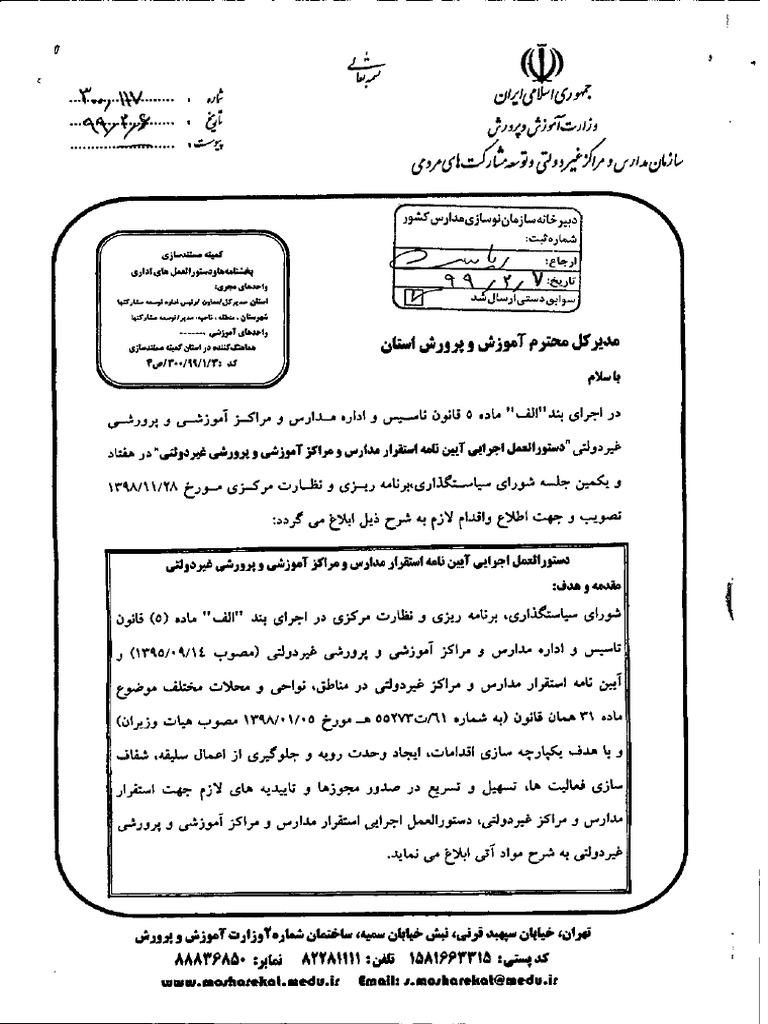 بسمه تعالی
جمهوری اسلامی ایران
وزارت آموزش و پرورش
سازمان مدارس و مراکز غیردولتی و توسعه مشارکت‌های مردمی
شماره : ۳۰۰/۱۱۷
تاریخ : ۹۹/۲/۶
پیوست :
دبیرخانه سازمان نوسازی مدارس کشور
شماره ثبت:
ارجاع: ریاست
تاریخ: ۹۹/۲/۷
سوابق دستی ارسال شد
کمیته مستندسازی
بخشنامه‌ها و دستورالعمل های اداری
واحدهای مجری:
استان : مدیرکل/معاون /رئیس اداره توسعه مشارکتها
شهرستان ، منطقه ، ناحیه: مدیر/ توسعه مشارکتها
واحدهای آموزشی: -------
هماهنگ‌کننده در استان کمیته مستندسازی
کد : ۳۰۰/۹۹/۱/۳/ص۴
مدیر کل محترم آموزش و پرورش استان
با سلام
در اجرای بند "الف" ماده ۵ قانون تاسیس و اداره مدارس و مراکز آموزشی و پرورشی
غیردولتی "دستورالعمل اجرایی آیین نامه استقرار مدارس و مراکز آموزشی و پرورشی غیردولتی" در هفتاد
و یکمین جلسه شورای سیاستگذاری،برنامه ریزی و نظارت مرکزی مورخ ۱۳۹۸/۱۱/۲۸
تصویب و جهت اطلاع واقدام لازم به شرح ذیل ابلاغ می گردد:
دستورالعمل اجرایی آیین نامه استقرار مدارس و مراکز آموزشی و پرورشی غیردولتی
مقدمه و هدف:
شورای سیاستگذاری، برنامه ریزی و نظارت مرکزی در اجرای بند "الف" ماده (۵) قانون
تاسیس و اداره مدارس و مراکز آموزشی و پرورشی غیردولتی (مصوب ۱۳۹۵/۰۹/۱۴) و
آیین نامه استقرار مدارس و مراکز غیردولتی در مناطق، نواحی و محلات مختلف موضوع
ماده ۳۱ همان قانون (به شماره ۶۱/ت۵۵۲۷۳ هـ مورخ ۱۳۹۸/۰۱/۰۵ مصوب هیات وزیران)
و با هدف یکپارچه سازی اقدامات، ایجاد وحدت رویه و جلوگیری از اعمال سلیقه، شفاف
سازی فعالیت ها، تسهیل و تسریع در صدور مجوزها و تاییدیه های لازم جهت استقرار
مدارس و مراکز غیردولتی، دستورالعمل اجرایی استقرار مدارس و مراکز آموزشی و پرورشی
غیردولتی به شرح مواد آتی ابلاغ می نماید.
تهران، خیابان سپهبد قرنی، نبش خیابان سمیه، ساختمان شماره۲وزارت آموزش و پرورش
کد پستی: ۱۵۸۱۶۶۳۳۱۵ تلفن: ۸۲۲۸۱۱۱۱ نمابر: ۸۸۸۳۶۸۵۰
www.mosharekat.medu.ir Email: s.mosharekat@medu.ir